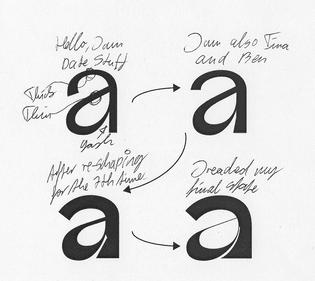 Hello, I am
Date Stuff
Thick
Thin
a
I am also Tina
and Ben
a
After re-shaping
for the 7th time
a
Dreaded my
final state
a